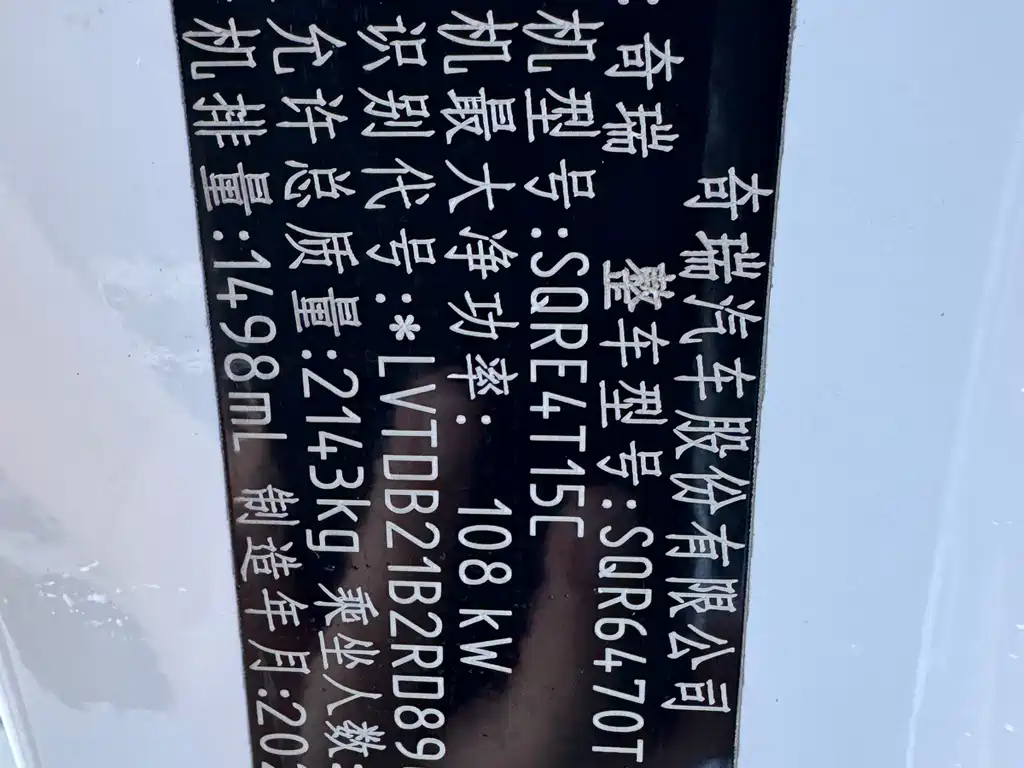 奇瑞汽车股份有限公司
:奇瑞 整车型号:SQR6470T
机型号:SQRE4T15C
机最大净功率: 108 kW
识别代号:*LVTDB21B2RD89
允许总质量:2143kg 乘坐人数:
机排量:1498mL 制造年月:20